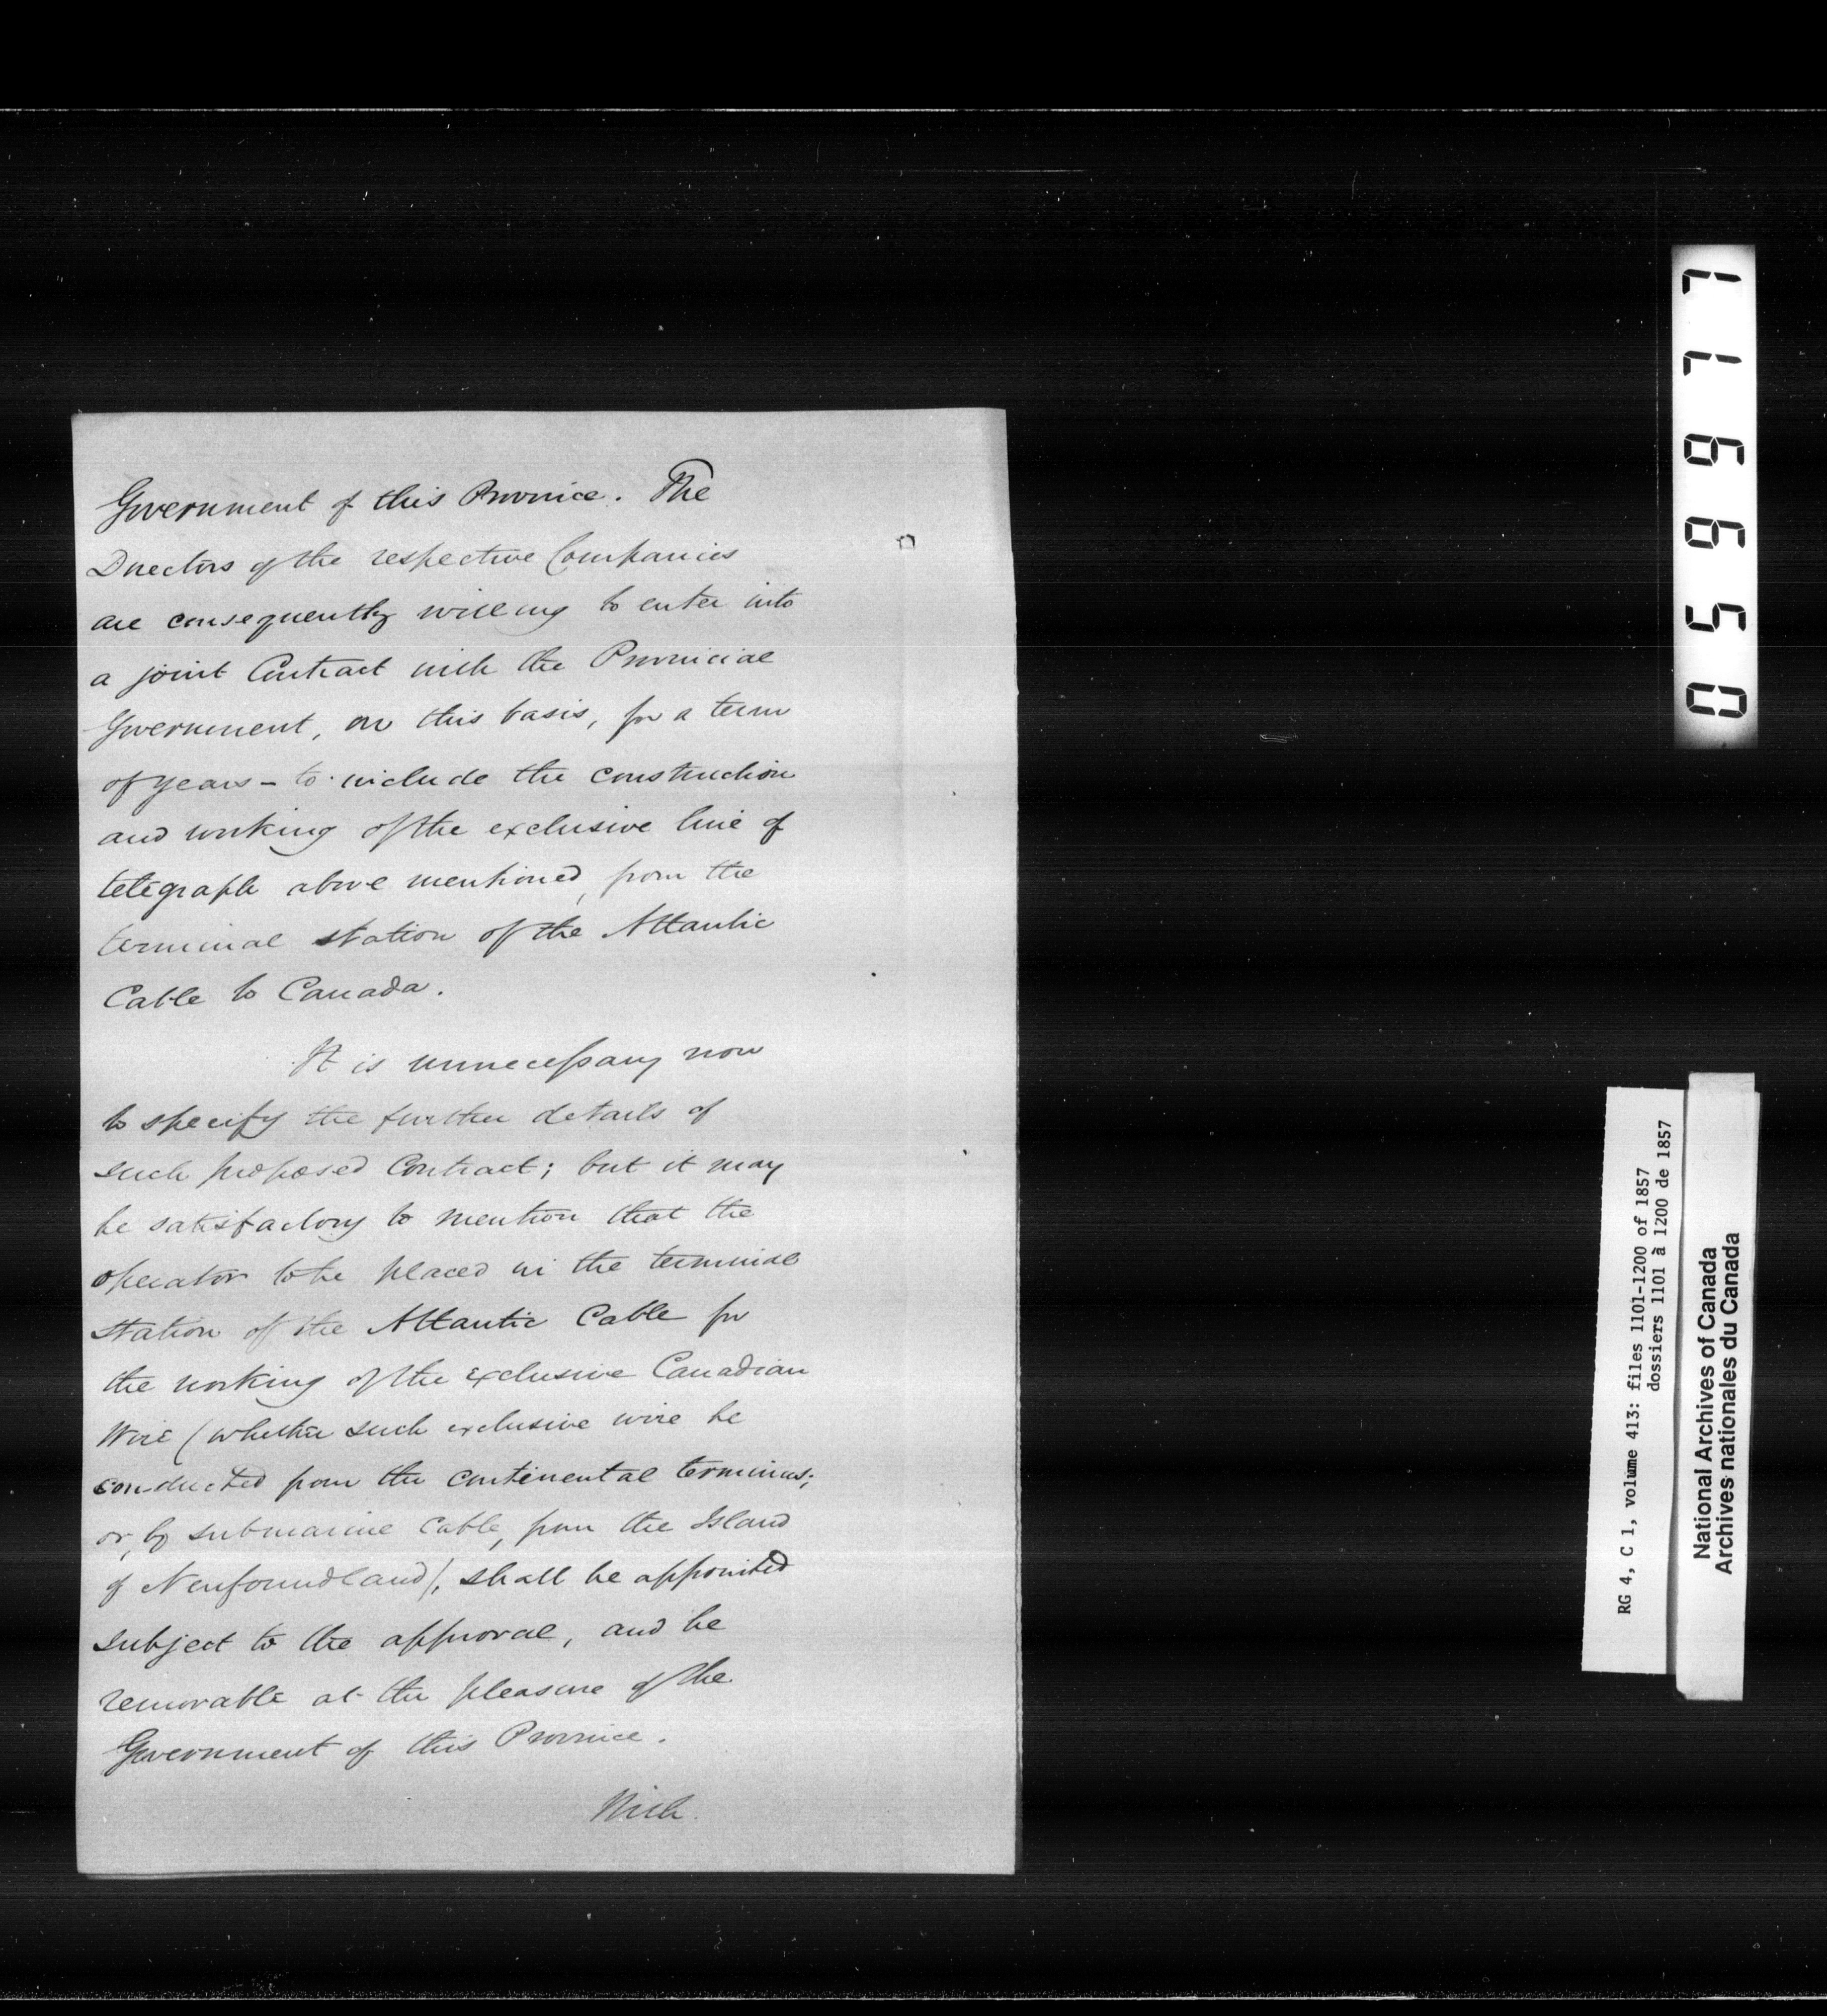 Government of this Province. The
Directors of the respective Companies
are consequently willing to enter into
a joint Contract with the Provincial
Government, on this basis, for a term
of years – to include the construction
and working of the exclusive line of
telegraph above mentioned, from the
terminal station of the Atlantic
Cable to Canada.
It is unnecessary now
to specify the further details of
such proposed Contract; but it may
be satisfactory to mention that the
operator to be placed in the terminal
station of the Atlantic Cable for
the working of the exclusive Canadian
Wire (whether such exclusive wire be
conducted from the continental terminus;
or, by submarine Cable, from the Island
of Newfoundland), shall be appointed
subject to the approval, and be
removable at the pleasure of the
Government of this Province.
With
056677
RG 4, C 1, volume 413: files 1101-1200 of 1857
dossiers 1101 à 1200 de 1857
National Archives of Canada
Archives nationales du Canada